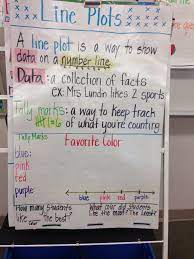 Line Plots
A line plot is a way to show
data on a number line.
Data: a collection of facts
ex: Mrs. Lundin likes 2 sports
Tally marks: a way to keep track
of what you're counting
Tally Marks
Favorite Color
blue:
pink:
red:
purple:
blue pink red purple
How many students
like the best?
What color did students
like the most? The least?